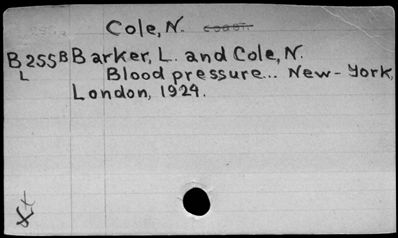 Cole, N.
B255B Barker, L. and Cole, N.
L Blood pressure... New-York,
London, 1924.